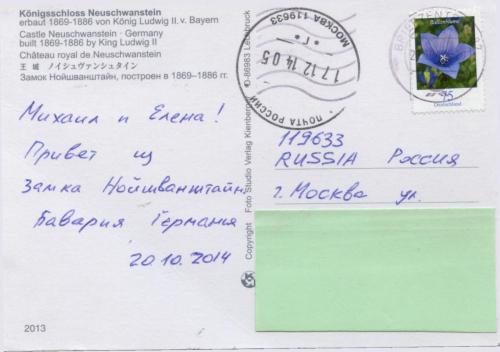 Königsschloss Neuschwanstein
erbaut 1869-1886 von König Ludwig II. v. Bayern
Castle Neuschwanstein · Germany
built 1869-1886 by King Ludwig II
Château royal de Neuschwanstein
王 城 ノイシュヴァンシュタイン
Замок Нойшванштайн, построен в 1869–1886 гг.
Михаил и Елена!
Привет из
Замка Нойшванштайн
Бавария Германия
20.10.2014
2013
Copyright Foto Studio Verlag Kienberger D-86983 Lechbruck
МОСКВА 119633
17 12 14 05
ПОЧТА РОССИИ
Ballonblume
75
Deutschland
BRIEFZENTRUM
119633
RUSSIA Россия
г. Москва ул.